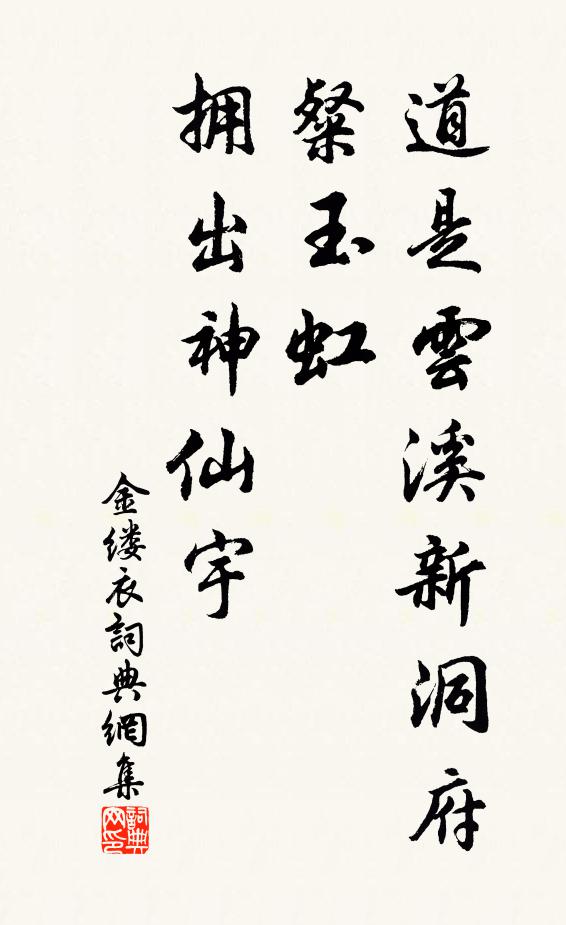 道是雲溪新洞府
粲玉虹
拥出神仙宇
金缕衣詞典網集
詞典网印